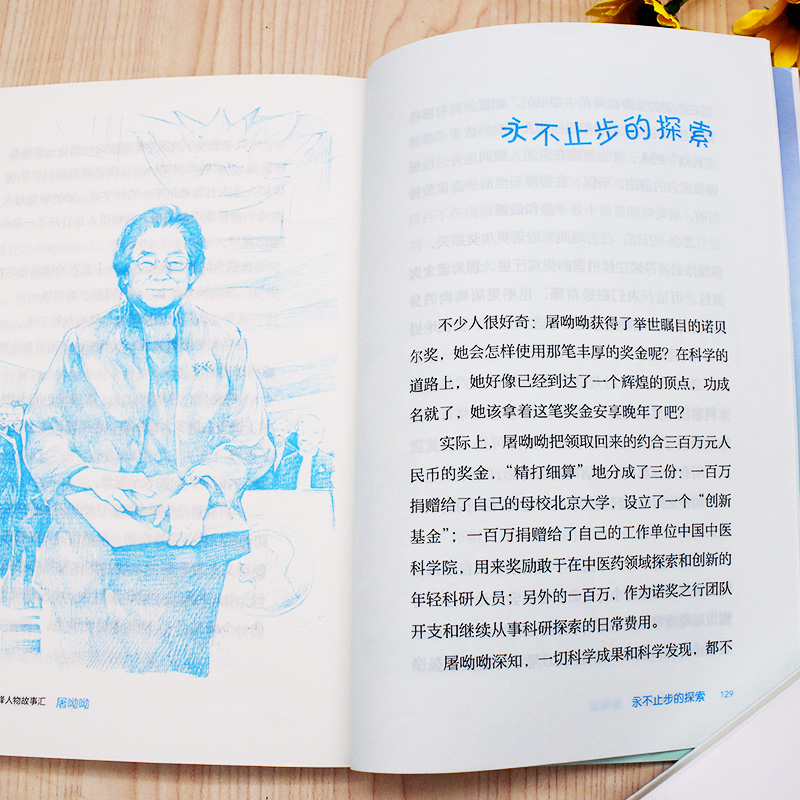 人物故事汇 屠呦呦
永不止步的探索
不少人很好奇：屠呦呦获得了举世瞩目的诺贝
尔奖，她会怎样使用那笔丰厚的奖金呢？在科学的
道路上，她好像已经到达了一个辉煌的顶点，功成
名就了，她该拿着这笔奖金安享晚年了吧？
实际上，屠呦呦把领取回来的约合三百万元人
民币的奖金，“精打细算”地分成了三份：一百万
捐赠给了自己的母校北京大学，设立了一个“创新
基金”；一百万捐赠给了自己的工作单位中国中医
科学院，用来奖励敢于在中医药领域探索和创新的
年轻科研人员；另外的一百万，作为诺奖之行团队
开支和继续从事科研探索的日常费用。
屠呦呦深知，一切科学成果和科学发现，都不
永不止步的探索 129